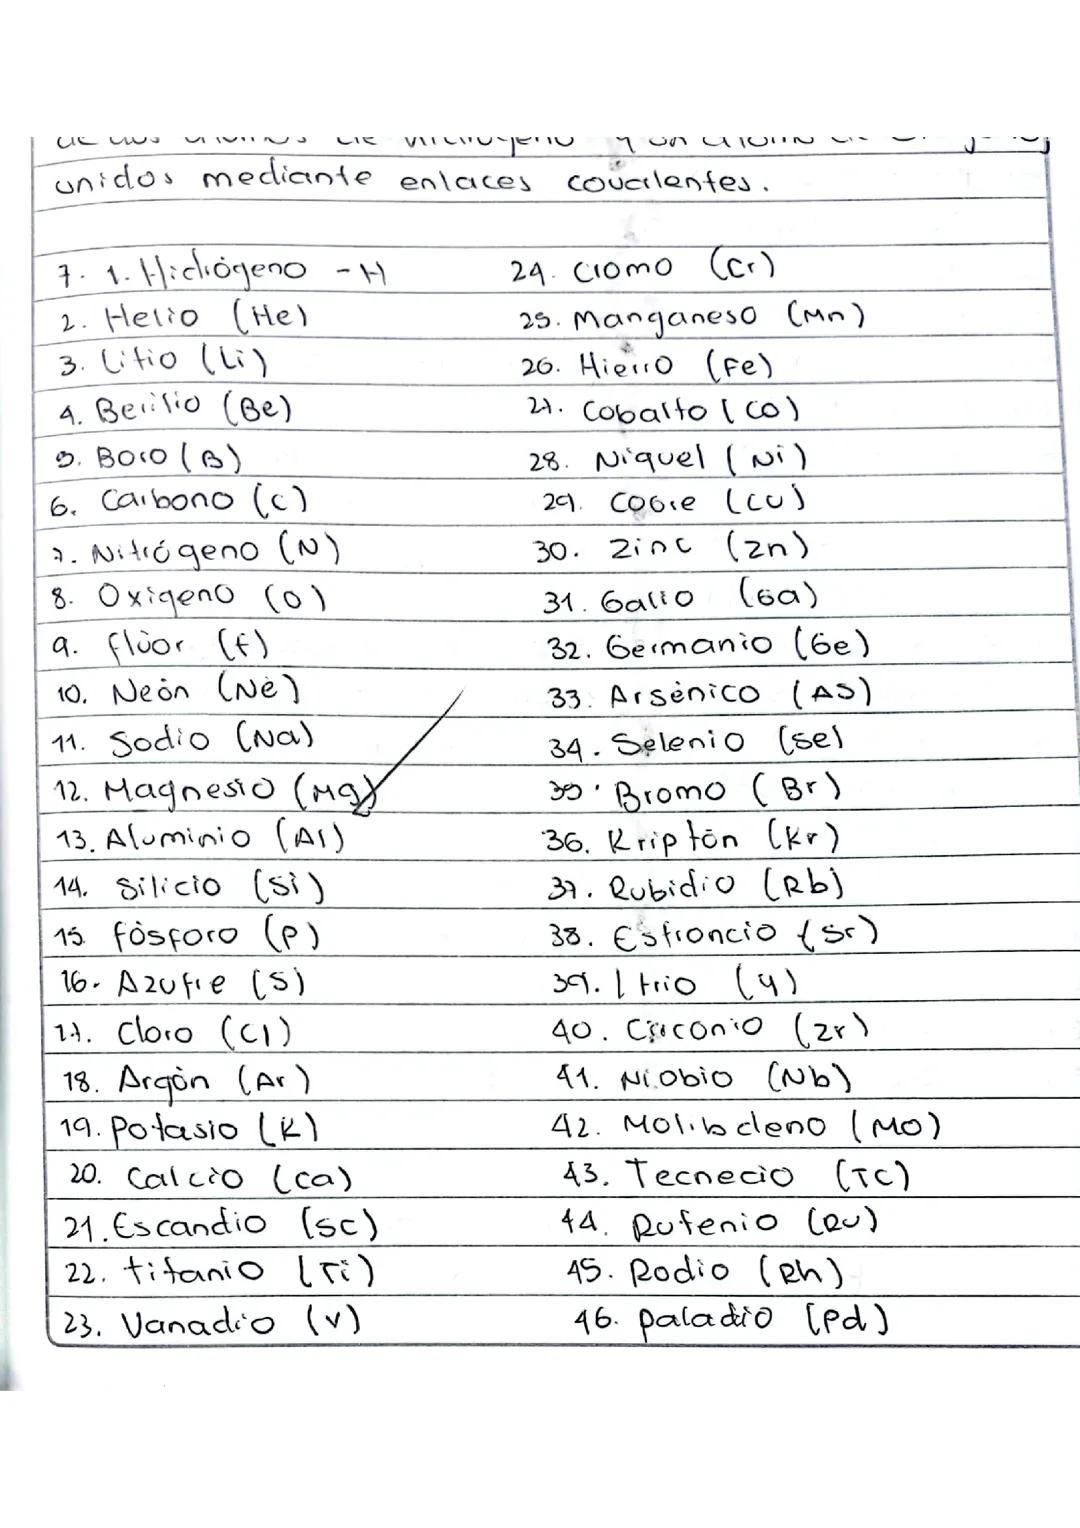 unidos mediante enlaces covalentes.
7. 1. Hidrógeno - H
2. Helio (He)
3. Litio (Li)
4. Berilio (Be)
5. Boro (B)
6. Carbono (C)
7. Nitrógeno (N)
8. Oxigeno (O)
9. flúor (f)
10. Neón (Ne)
11. Sodio (Na)
12. Magnesio (Mg)
13. Aluminio (Al)
14. Silicio (Si)
15 fósforo (P)
16. Azufre (S)
17. Cloro (Cl)
18. Argón (Ar)
19. Potasio (K)
20. Calcio (ca)
21. Escandio (sc)
22. titanio (Ti)
23. Vanadio (v)
24. Cromo (Cr)
25. Manganeso (Mn)
26. Hierro (Fe)
27. Cobalto (co)
28. Niquel (Ni)
29. Cobre (cu)
30. Zinc (Zn)
31. Galio (Ga)
32. Germanio (Ge)
33. Arsénico (AS)
34. Selenio (se)
35. Bromo (Br)
36. Kriptón (Kr)
37. Rubidio (Rb)
38. Estroncio (Sr)
39. Itrio (y)
40. Circonio (Zr)
41. Niobio (Nb)
42. Molibdeno (MO)
43. Tecnecio (TC)
44. Rutenio (Ru)
45. Rodio (Rh)
46. paladio (Pd)